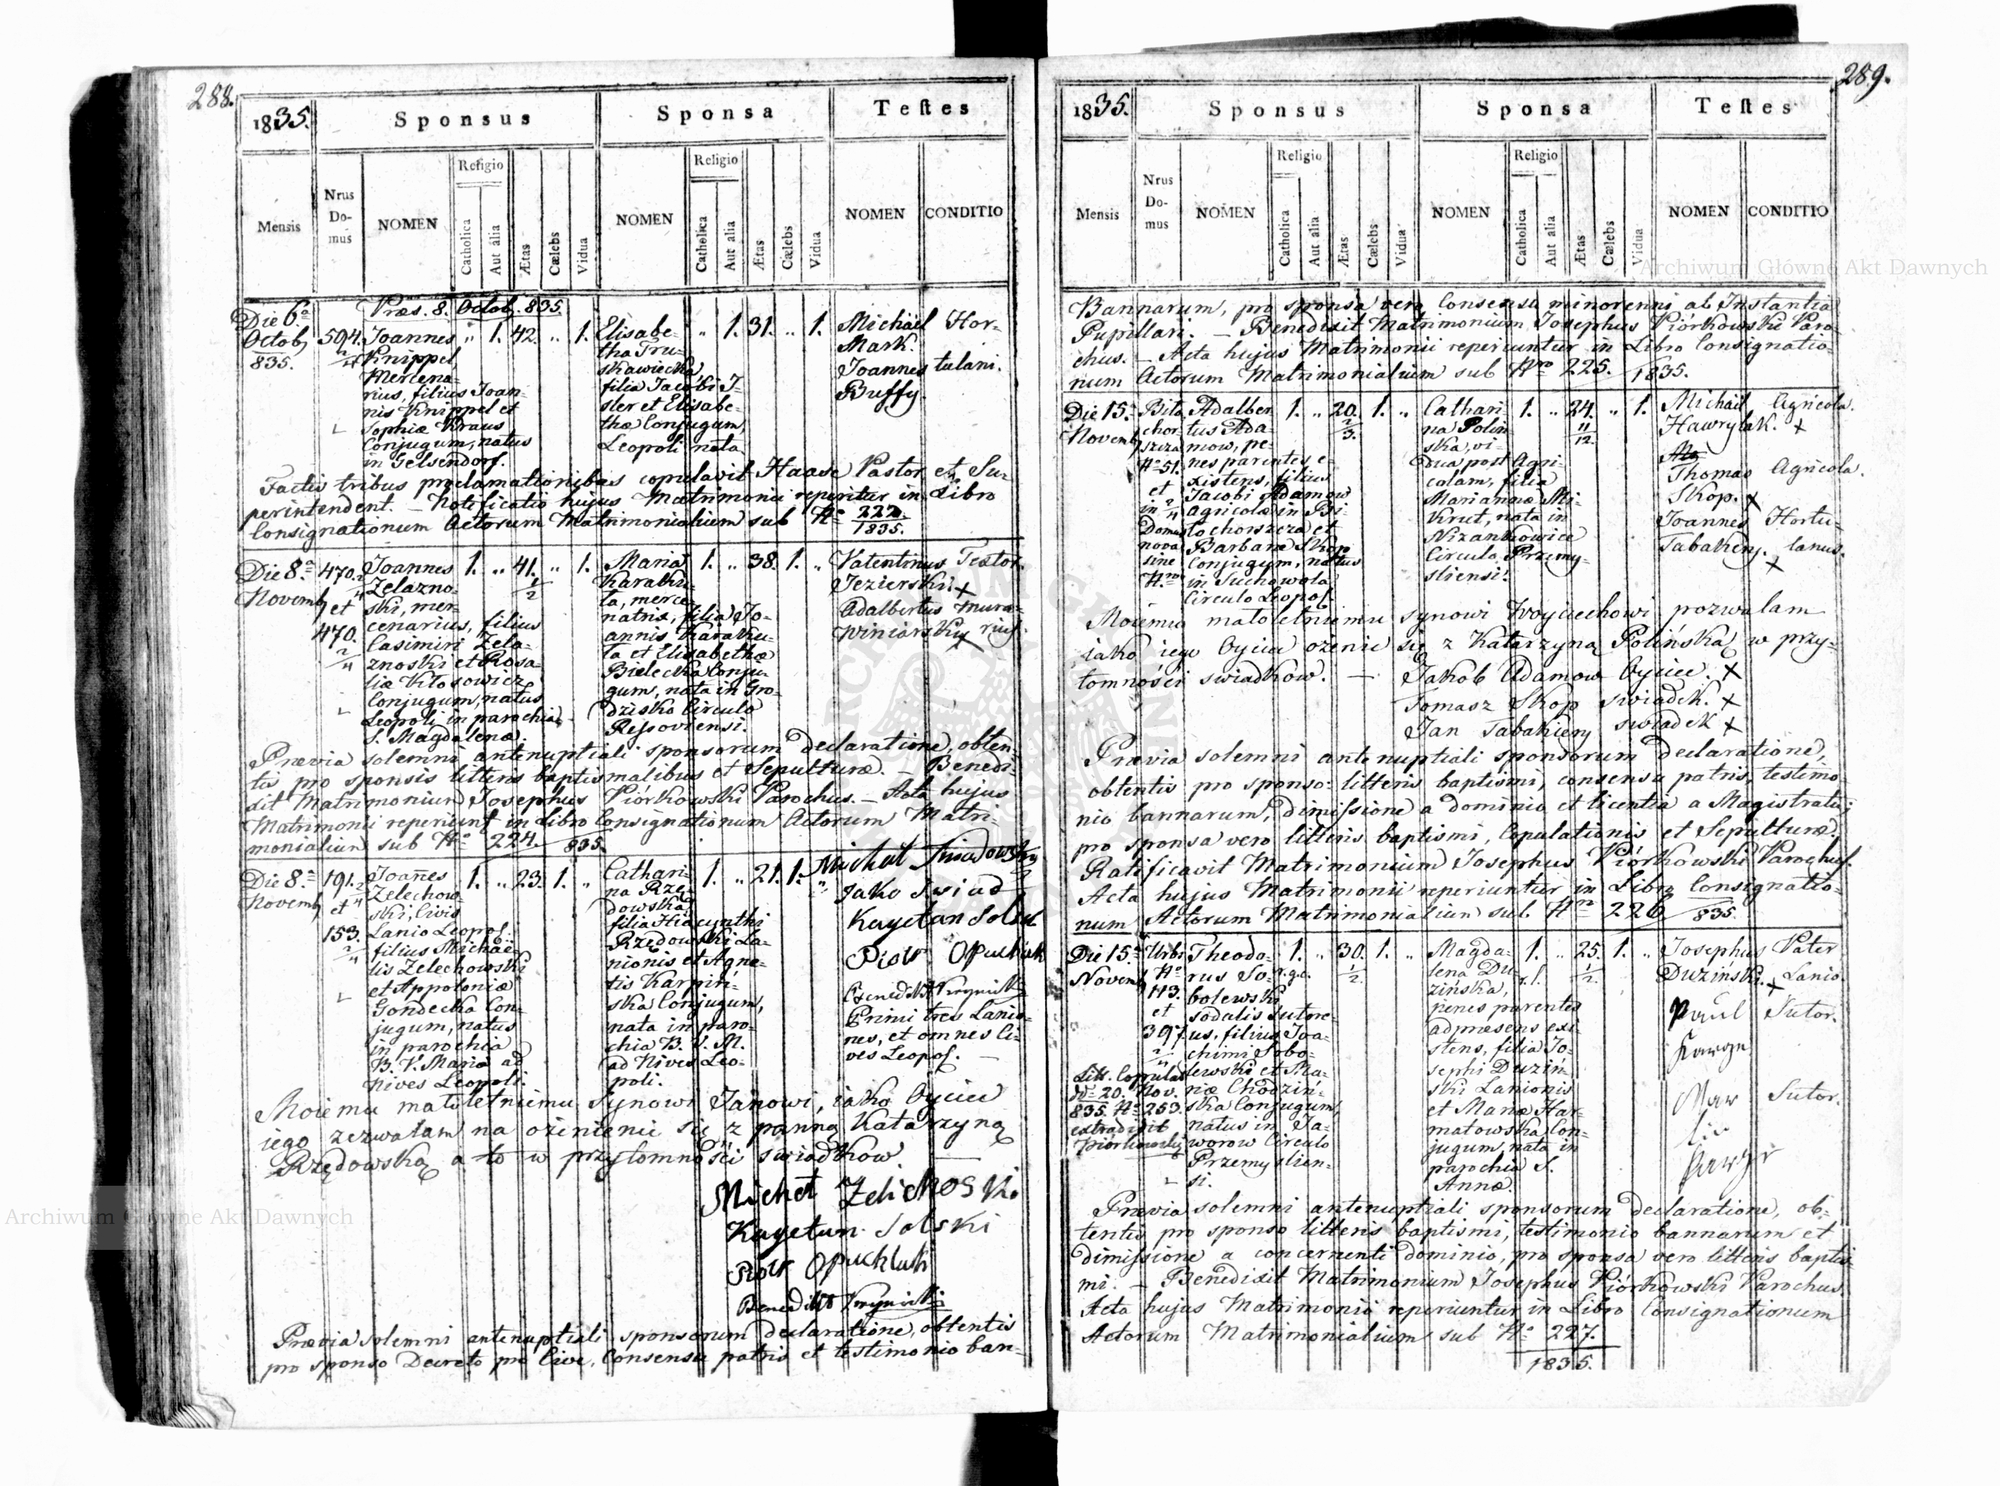 288.
1835.
Sponsus
Sponsa
Testes
Mensis
Nrus Do-mus
NOMEN
Religio
Catholica
Aut alia
Ætas
Cælebs
Vidua
NOMEN
Religio
Catholica
Aut alia
Ætas
Cælebs
Vidua
NOMEN
CONDITIO
Præs. 8. Octob. 835.
Die 6a
Octob
835.
594.
2/4
Joannes
Knippel
Mercena-
rius, filius Joan-
nis Knippel et
Sophiæ Kraus
Conjugum, natus
in Gelsendorf.
" 1. 42. " 1.
Elisabe-
tha Tru-
skawiecka
filia Jacobi I-
sler et Elisabe-
thæ Conjugum,
Leopoli nata
" 1. 31. " 1.
Michäel Hor-
Mark.
Joannes tulani.
Buffy.
Factis tribus proclamationibus copulavit Haase Pastor et Su-
perintendent. – Notificatio hujus Matrimonii reperitur in Libro
Consignationum Actorum Matrimonialium sub No 222.
1835.
Die 8.a
Novemb
470. 2/4
et
470.
2/4
Joannes
Zelazno-
ski, mer-
cenarius, filius
Casimiri Zela-
znoski et Rosa-
liæ Kłosowicz
Conjugum, natus
Leopoli in parochia
S. Magdalenæ.
1. " 41. 1/2 " 1.
Maria
Karaku-
ta, merce-
natris, filia Jo-
annis Karaku-
ta et Elisabethæ
Bielecka Conju-
gum, nata in Gro-
dzisko Circulo
Ressoviensi.
1. " 38. 1. "
Valentinus Textor.
Jezierski. +
Adalbertus Mura-
Winiarsky rius.
+
Prævia solemni antenuptiali sponsorum declaratione, obten-
tis pro sponsis litteris baptismalibus et Sepulturæ. – Benedi-
xit Matrimonium Josephus Piórkowski Parochus. – Acta hujus
Matrimonii reperiunt in Libro Consignationum Actorum Matri-
monialium sub No 224. 835.
Die 8.a
Novemb
191. 2/4
et
153.
2/4
Joanes
Zelechow-
ski, Civis
Lanio Leopol.
filius Michäe-
lis Zelechowski
et Appoloniæ
Gondecka Con-
jugum, natus
in parochia
B. V. Mariæ ad
Nives Leopoli.
1. " 23. 1. "
Cathari-
na Rzę-
dowska
filia Hiacynthi
Rzędowski La-
nionis et Agne-
tis Karpiń-
ska Conjugum,
nata in paro-
chia B. V. M.
ad Nives Leo-
poli.
1. " 21. 1. "
Michał
Jako Swiad
Kayetan Solsk
Piotr Opuchlak
Benedikt
Primi tres Lanio-
nes, et omnes Ci-
ves Leopol. –
Moiemu małoletniemu Synowi Janowi, iako Oyciec
iego zezwalam na ożenienie się z panną Katarzyną
Rzędowską a to w przytomności świadków
Michał Zelichoski.
Kayetan Solski
Piotr Opuchlak
Benedikt
Prævia solemni antenuptiali sponsorum declaratione, obtentis
pro sponso Decreto pro Cive, Consensu patris et testimonio ban-
289.
1835.
Sponsus
Sponsa
Testes
Mensis
Nrus Do-mus
NOMEN
Religio
Catholica
Aut alia
Ætas
Cælebs
Vidua
NOMEN
Religio
Catholica
Aut alia
Ætas
Cælebs
Vidua
NOMEN
CONDITIO
Bannarum, pro sponsa vero Consensu minorenni ab Instantia
Pupillari. – Benedixit Matrimonium Josephus Piórkowski Paro-
chus. – Acta hujus Matrimonii reperiuntur in Libro Consignatio-
num Actorum Matrimonialium sub Nro 225. 1835.
Die 15.
Novemb
Biło
chor-
szcza
No 51.
et
in 2/4
Domo
nova
sine
No
Adalber-
tus Ada-
mow, pe-
nes parentes e-
xistens, filius
Jacobi Adamow
Agricolæ in Bi-
łochorszcza et
Barbaræ Skop
Conjugum, natus
in Suchowola
Circulo Leopol.
1. " 20. 2/3. 1. "
Cathari-
na Polin-
ska, vi-
dua post Agri-
colam, filia
Mariannæ Mi-
krut, nata in
Nizankowice
Circulo Przemy-
sliensi.
1. " 24. 11/12. " 1.
Michäil Agricola.
Hawrylak. +
Thomas Agricola.
Skop. +
Joannes Hortu-
Tabakiery. lanus.
+
Moiemu małoletniemu synowi Woyciechowi pozwalam
iako iego Oyciec ożenic się z Katarzyną Polińską w przy-
tomności swiadków. – Jakob Adamow Oyciec. +
Tomasz Skop swiadek. +
Jan Tabakiery swiadek +
Prævia solemni antenuptiali sponsorum declaratione,
obtentis pro sponso litteris baptismi, consensu patris, testimo-
nio bannarum, dimissione a dominio et licentia a Magistratu;
pro sponsa vero litteris baptismi, Copulationis et Sepulturæ.
Ratificavit Matrimonium Josephus Piórkowski Parochus.
Acta hujus Matrimonii reperiuntur in Libro Consignatio-
num Actorum Matrimonialium sub Nro 226. 835.
Die 15.a
Novemb
Urbi
No
113.
et
397.
2/4
Litt. Copulat
dto 20. Nov.
835. No 253.
extradidit
Piórkowski
Theodo-
rus So-
bolewski
sodalis sutore-
us, filius Joa-
chimi Sobo-
lewski et Ma-
riæ Chodziń-
ska Conjugum,
natus in Ja-
worow Circulo
Przemyslien-
si.
1. r.g.c. " 30. 1/2 1. "
Magda-
lena Du-
zińska,
penes parentes
ad præsens exi-
stens, filia Jo-
sephi Duziń-
ski Lanionis
et Mariæ Har-
matowska Con-
jugum, nata in
parochia S.
Annæ.
1. r.l. " 25. 1/2 1. "
Josephus Pater
Duziński. + Lanio.
Paul Sutor.
Sutor.
Prævia solemni antenuptiali sponsorum declaratione, ob-
tentis pro sponso litteris baptismi, testimonio bannarum et
dimissione a concernenti dominio, pro sponsa vero litteris baptis-
mi. – Benedixit Matrimonium Josephus Piórkowski Parochus
Acta hujus Matrimonii reperiuntur in Libro Consignationum
Actorum Matrimonialium sub No 227.
1835.
Archiwum Główne Akt Dawnych
Archiwum Główne Akt Dawnych